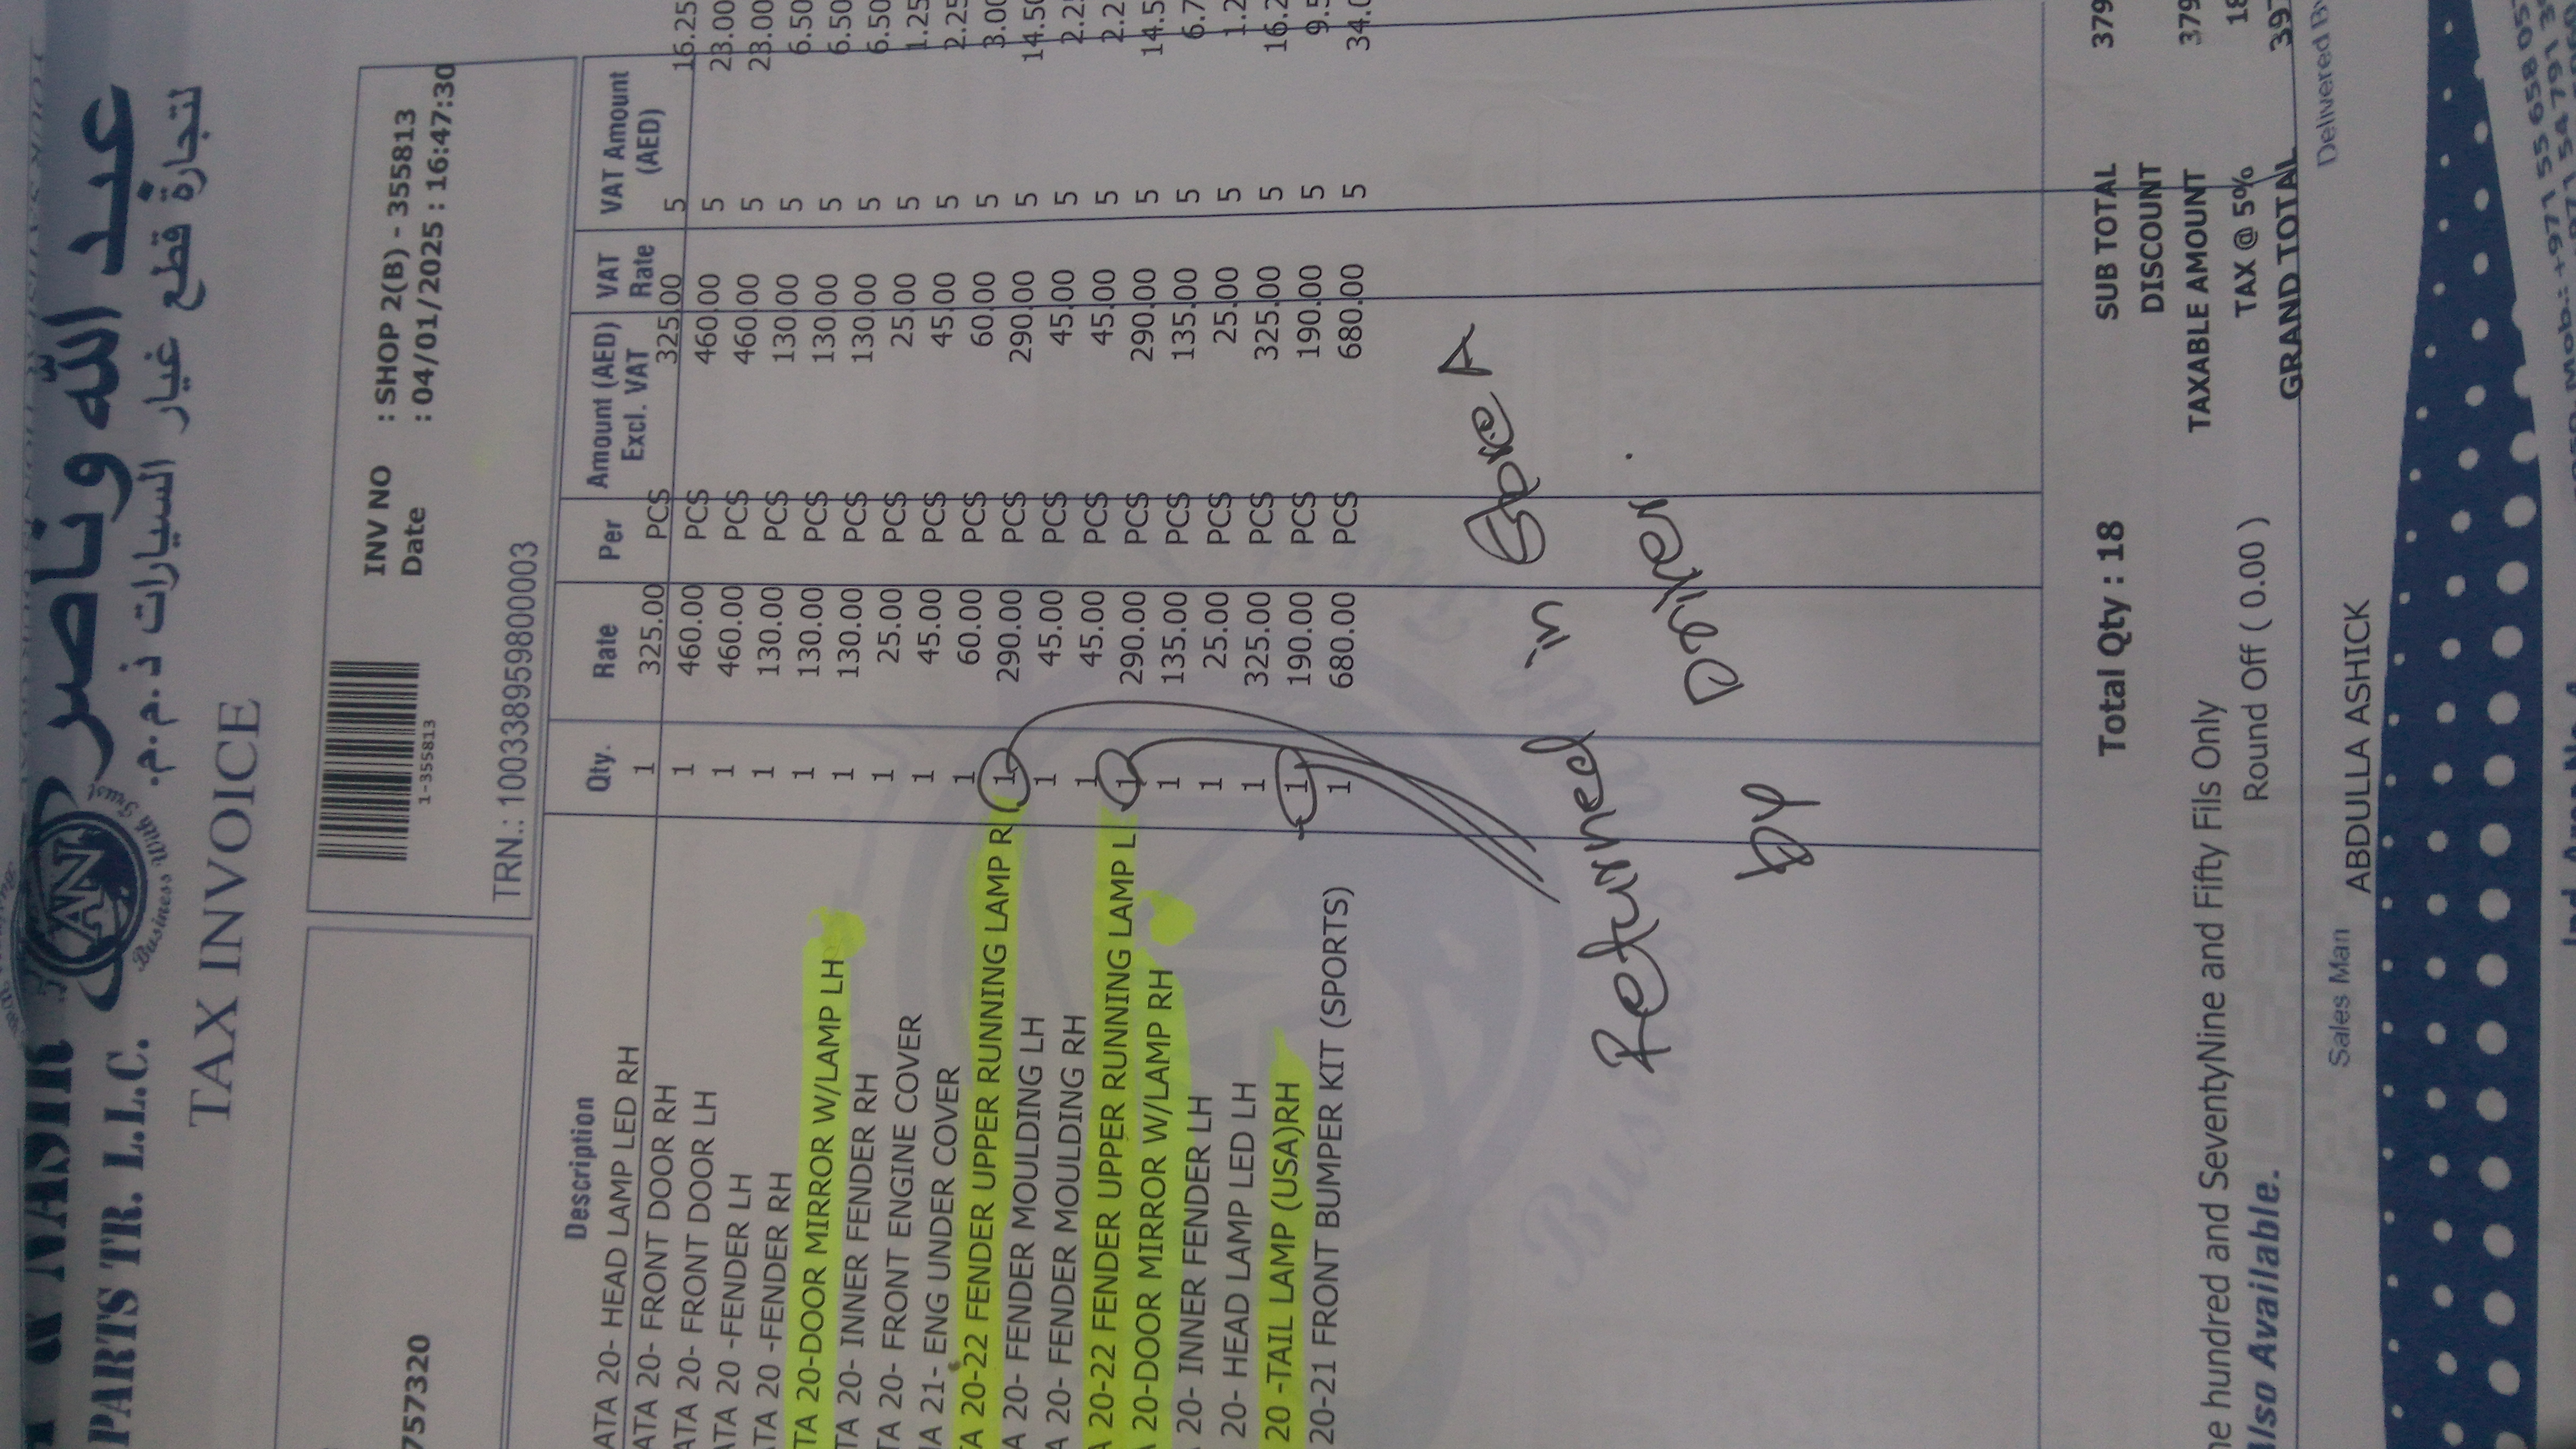 عبد الله وناصر
لتجارة قطع غيار السيارات ذ.م.م.
& NASIR
PARTS TR. L.L.C.
AN
Business With Trust
TAX INVOICE
1-355813
INV NO : SHOP 2(B) - 355813
Date : 04/01/2025 : 16:47:30
757320
TRN.: 100338959800003
Description Qty. Rate Per Amount (AED) Excl. VAT VAT Rate VAT Amount (AED)
ATA 20- HEAD LAMP LED RH 1 325.00 PCS 325.00 5 16.25
ATA 20- FRONT DOOR RH 1 460.00 PCS 460.00 5 23.00
ATA 20- FRONT DOOR LH 1 460.00 PCS 460.00 5 23.00
ATA 20 -FENDER LH 1 130.00 PCS 130.00 5 6.50
ATA 20 -FENDER RH 1 130.00 PCS 130.00 5 6.50
TA 20-DOOR MIRROR W/LAMP LH 1 130.00 PCS 130.00 5 6.50
TA 20- INNER FENDER RH 1 25.00 PCS 25.00 5 1.25
TA 20- FRONT ENGINE COVER 1 45.00 PCS 45.00 5 2.25
A 21- ENG UNDER COVER 1 60.00 PCS 60.00 5 3.00
A 20-22 FENDER UPPER RUNNING LAMP R 1 290.00 PCS 290.00 5 14.50
A 20- FENDER MOULDING LH 1 45.00 PCS 45.00 5 2.2
A 20- FENDER MOULDING RH 1 45.00 PCS 45.00 5 2.2
A 20-22 FENDER UPPER RUNNING LAMP L 1 290.00 PCS 290.00 5 14.5
20-DOOR MIRROR W/LAMP RH 1 135.00 PCS 135.00 5 6.7
20- INNER FENDER LH 1 25.00 PCS 25.00 5 1.2
20- HEAD LAMP LED LH 1 325.00 PCS 325.00 5 16.2
20 -TAIL LAMP (USA)RH 1 190.00 PCS 190.00 5 9.5
20-21 FRONT BUMPER KIT (SPORTS) 1 680.00 PCS 680.00 5 34.0
Returned in
by Driker.
Total Qty : 18 SUB TOTAL 379
DISCOUNT
TAXABLE AMOUNT 379
e hundred and SeventyNine and Fifty Fils Only TAX @ 5% 18
Round Off ( 0.00 ) GRAND TOTAL 397
lso Available.
Sales Man ABDULLA ASHICK Delivered By
Mob.: +971 55 658 05